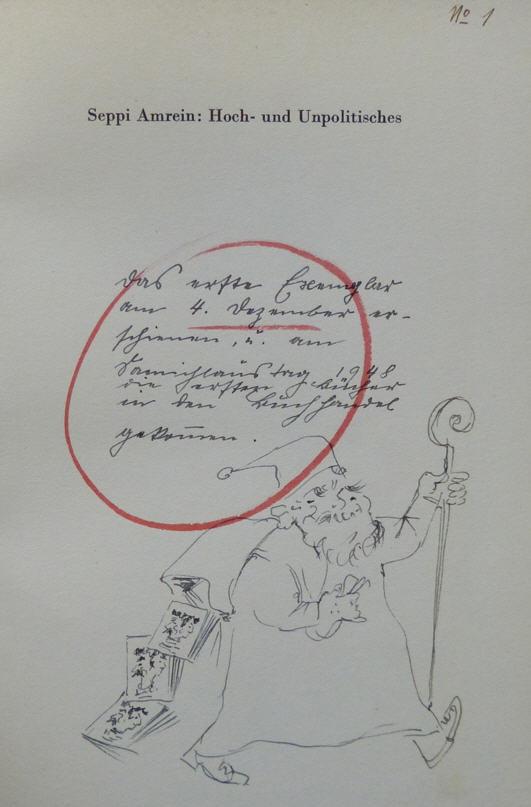 No 1
Seppi Amrein: Hoch- und Unpolitisches
Das erste Exemplar
am 4. Dezember er-
schienen, u. am
Samichlaustag 1948
die ersten Bücher
in den Buchhandel
gekommen.